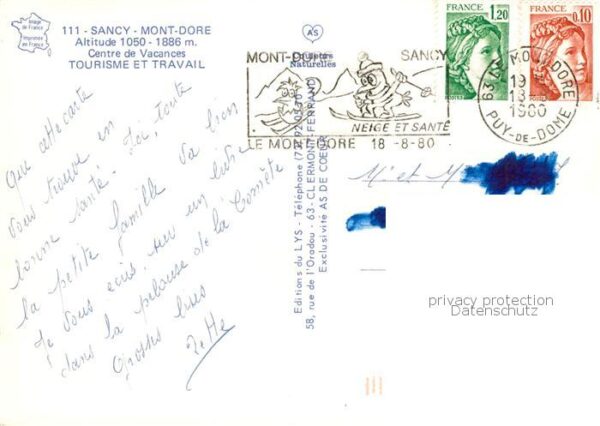 Image de France
Imprimée en France
111 - SANCY - MONT-DORE
Altitude 1050 - 1886 m.
Centre de Vacances
TOURISME ET TRAVAIL
AS
Couleurs
Naturelles
Que cette carte
vous trouve en
bonne santé. Ici, toute
la petite famille va bien
Je vous écris sur un
dans la pelouse de la Comète
Grosses bises
Editions du LYS - Téléphone
58, rue de l'Oradou - 63 - CLERMONT-FERRAND
Exclusivité AS DE COEUR
MONT-DORE SANCY
NEIGE ET SANTÉ
LE MONT-DORE 18-8-80
FRANCE
1,20
POSTES
FRANCE
0,10
POSTES
63 LE MONT-DORE
18-8
1980
PUY-DE-DOME
M. et M
privacy protection
Datenschutz